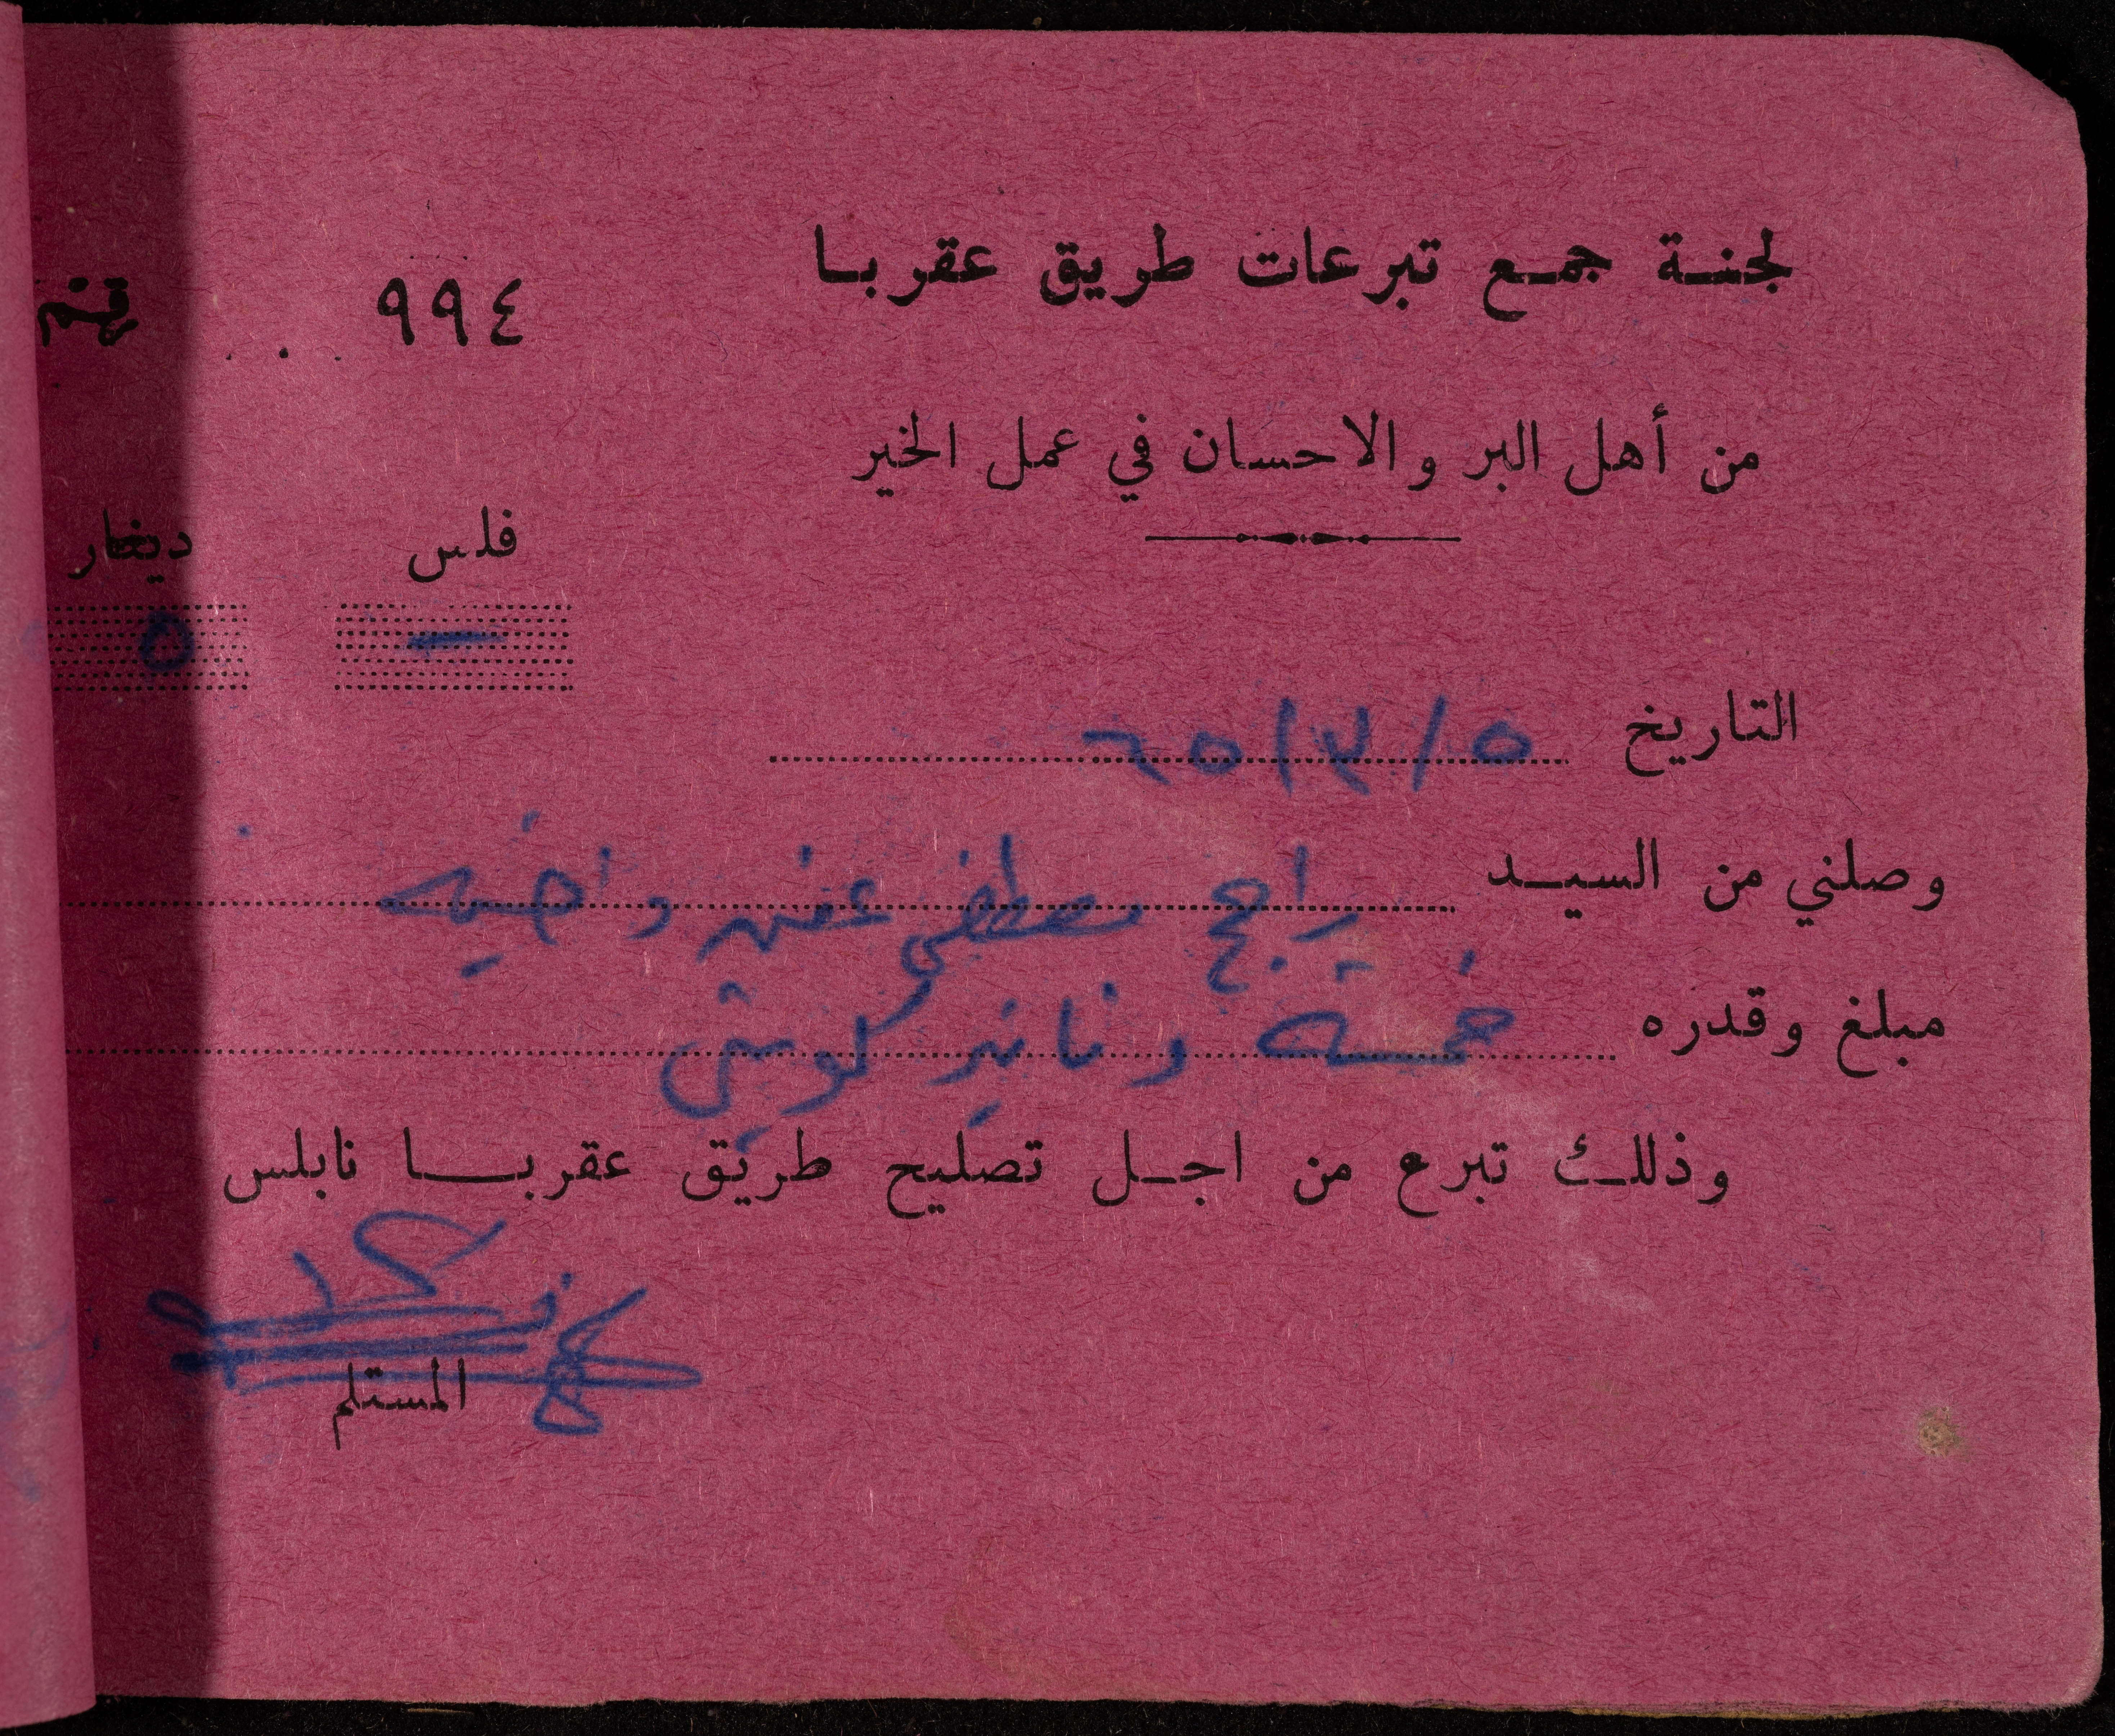 لجنة جمع تبرعات طريق عقربا
٩٩٤
من أهل البر والاحسان في عمل الخير
فلس دينار
— ٥
التاريخ ٥ / ٣ / ٦٥
وصلني من السيد راجح مصطفى
مبلغ وقدره خمسة دنانير كويتي
وذلك تبرع من اجل تصليح طريق عقربا نابلس
المستلم